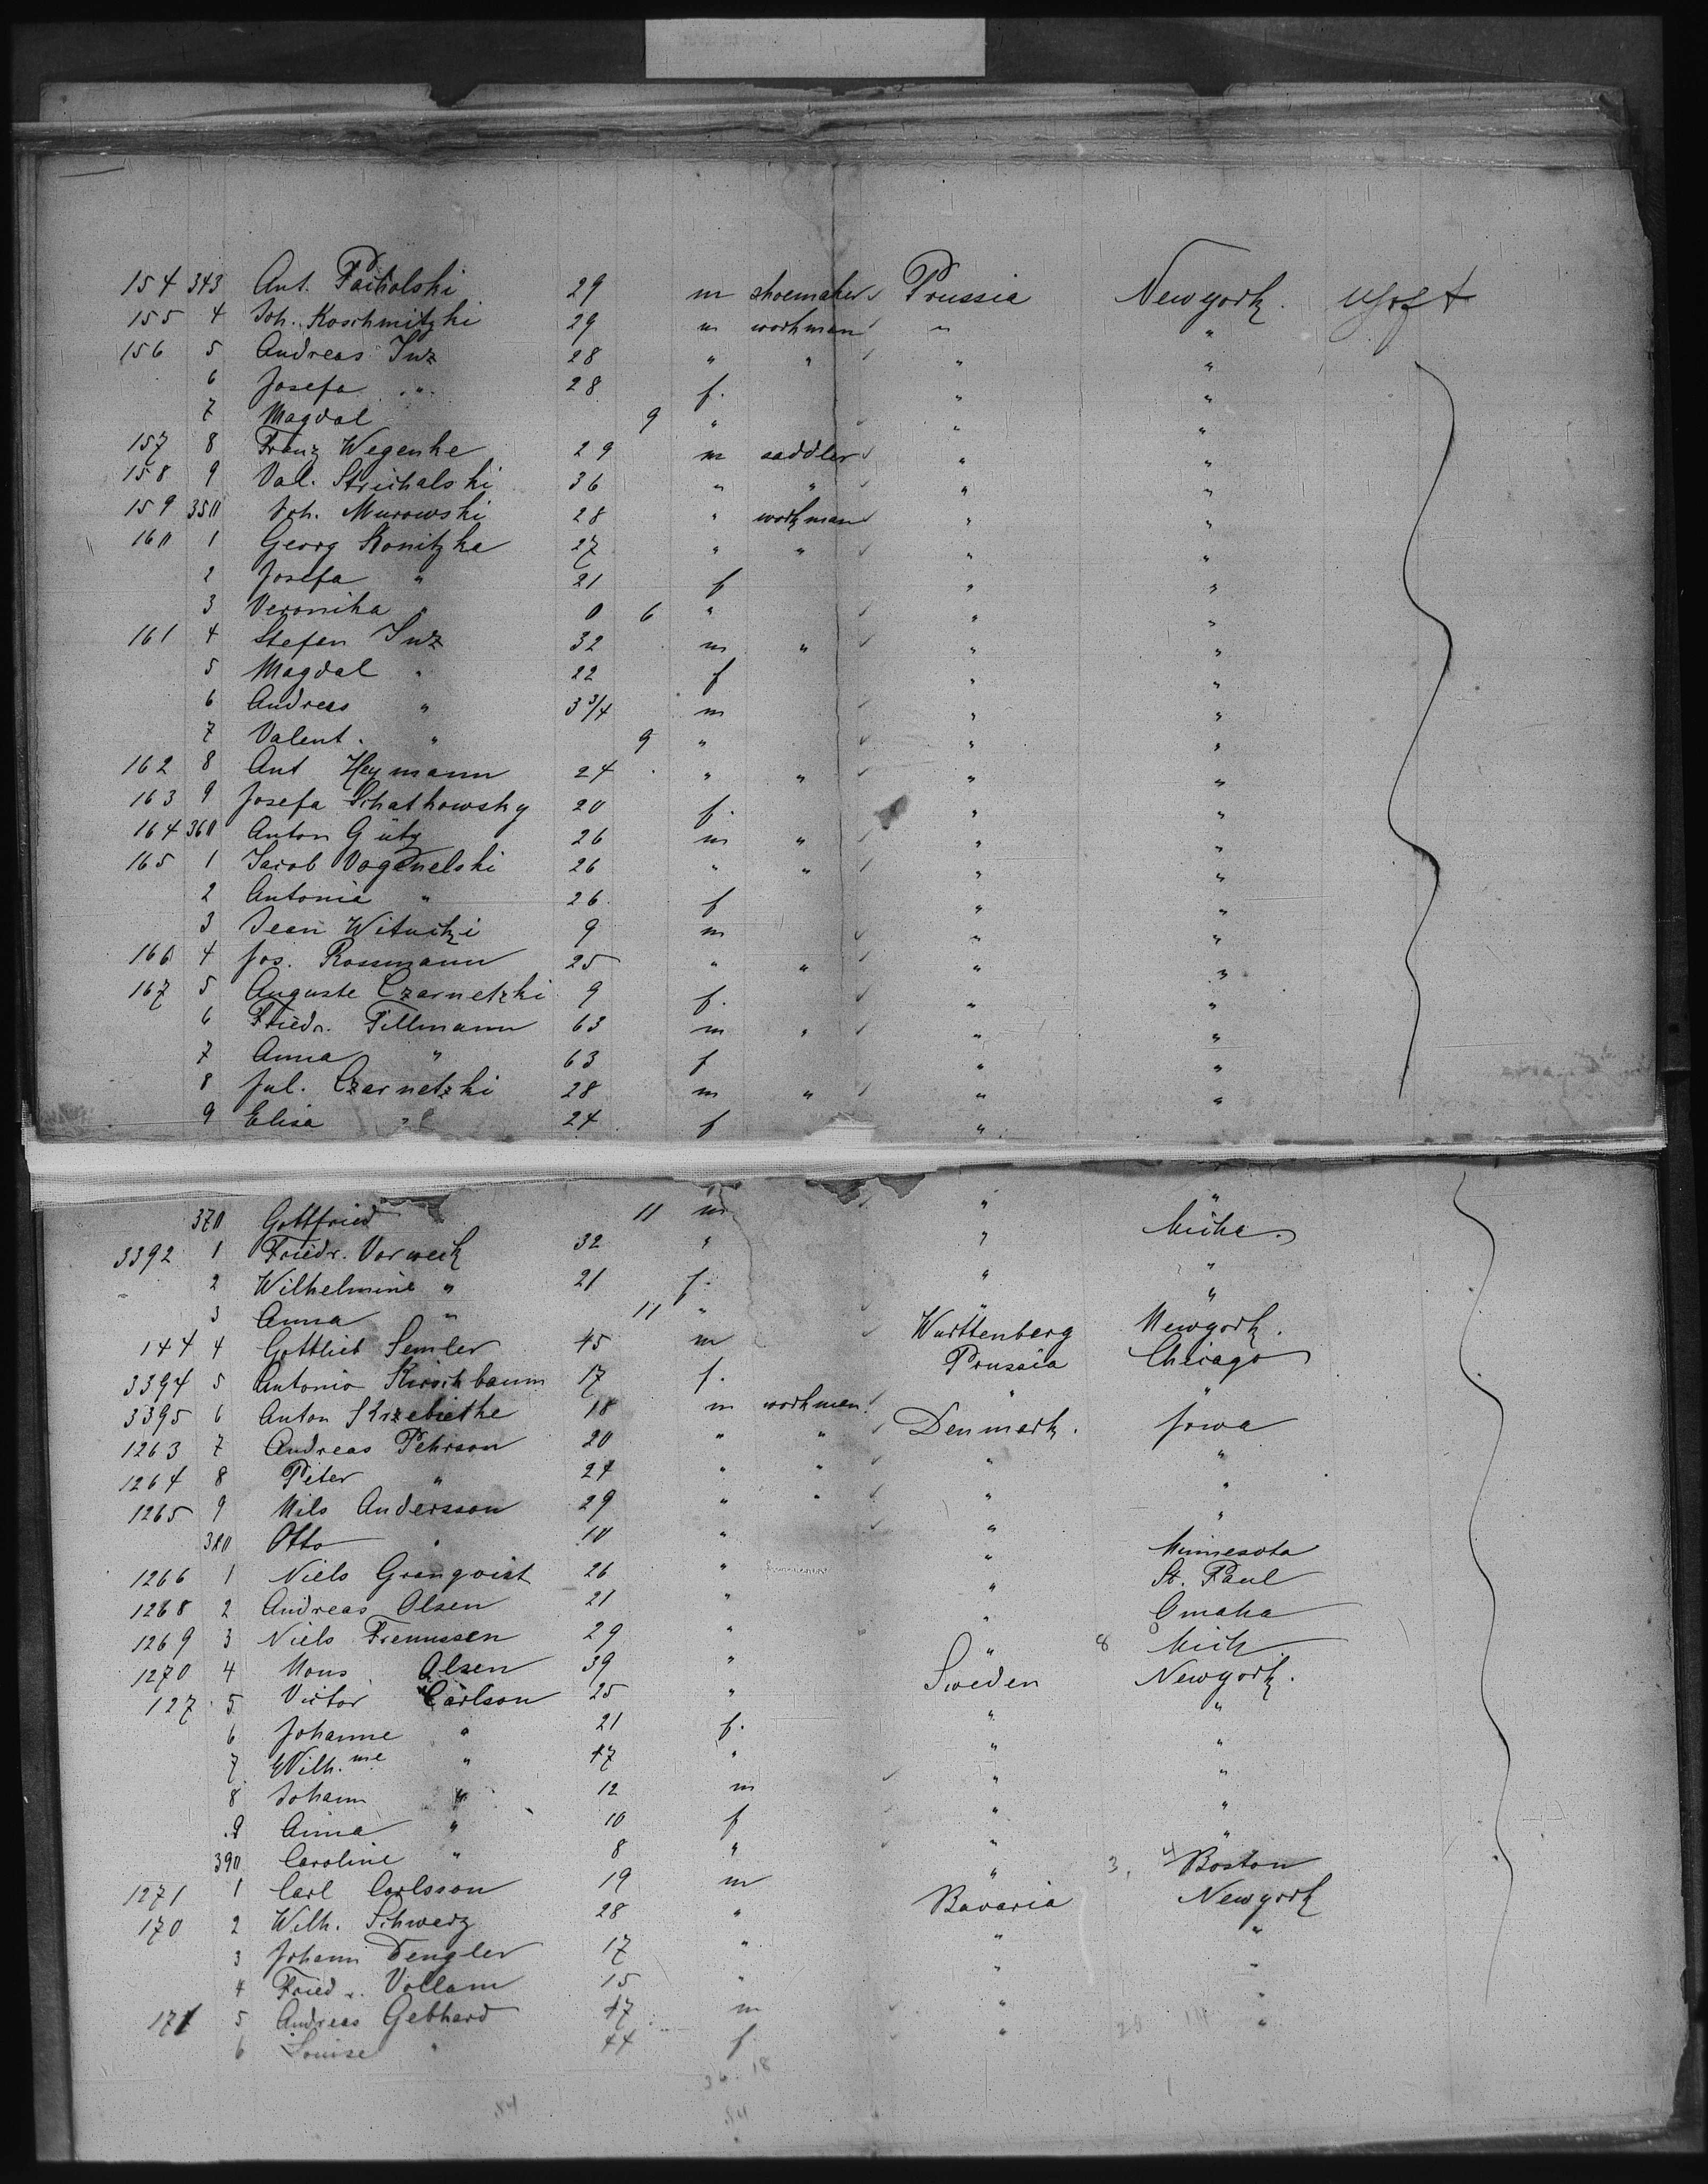 154 343 Ant. Pacholski 29 m shoemaker Prussia Newyork.
155 4 Joh. Koschmitzki 29 m workman " "
156 5 Andreas Inz 28 " " " "
6 Josefa " 28 f. " "
7 Magdal 9 " " "
157 8 Franz Wegenke 29 m saddler " "
158 9 Val. Strichalski 36 " " " "
159 350 Joh. Murowski 28 " workman " "
160 1 Georg Konitzka 27 " " " "
2 Josefa " 21 f " "
3 Veronika " 0 6 " " "
161 4 Stefan Inz 32 m " " "
5 Magdal " 22 f " "
6 Andreas " 3 3/4 m " "
7 Valent. " 9 " " "
162 8 Ant Heymann 24 " " " "
163 9 Josefa Schatkowsky 20 f. " "
164 360 Anton Gütz 26 m " " "
165 1 Jacob Vogenelski 26 " " " "
2 Antonia " 26 f " "
3 Jean Witucki 9 m " "
166 4 Jos. Rossmann 25 " " " "
167 5 Auguste Czarnetzki 9 f. " "
6 Friedr. Tillmann 63 m " " "
7 Anna " 63 f " "
8 Jul. Czarnetzki 28 m " " "
9 Elisa " 24 f "
370 Gottfried 11 m " "
3392 1 Friedr. Vorweck 32 " " Miche.
2 Wilhelmine " 21 f. " "
3 Anna " 11 " " "
144 4 Gottlieb Semler 45 m Württenberg Newyork.
3394 5 Antonio Kirschbaum 17 f. Prussia Chicago
3395 6 Anton Skrzebiethe 18 m workman. " "
1263 7 Andreas Pehrson 20 " " Denmark. Jowa
1264 8 Peter " 24 " " " "
1265 9 Nils Andersson 29 " " " "
380 Otto " 10 " " "
1266 1 Niels Granqvist 26 " " Minnesota
1268 2 Andreas Olsen 21 " " St. Paul
1269 3 Niels 29 " " Omaha
1270 4 Mons Olsen 39 " " 8 Mich
127 5 Victor Carlson 25 " Sweden Newyork.
6 Johanne " 21 f. " "
7 Wilh.me " 17 " " "
8 Johann " 12 m " "
9 Anna " 10 f " "
390 Caroline " 8 " " "
1271 1 Carl Carlsson 19 m " 3. 4 Boston
170 2 Wilh. Schwarz 28 " Bavaria Newyork
3 Johann Dengler 17 " " "
4 Fried. Vollam 15 " " "
171 5 Andreas Gebhard 47 m " "
6 Louise " 44 f " "
36. 18
84 84